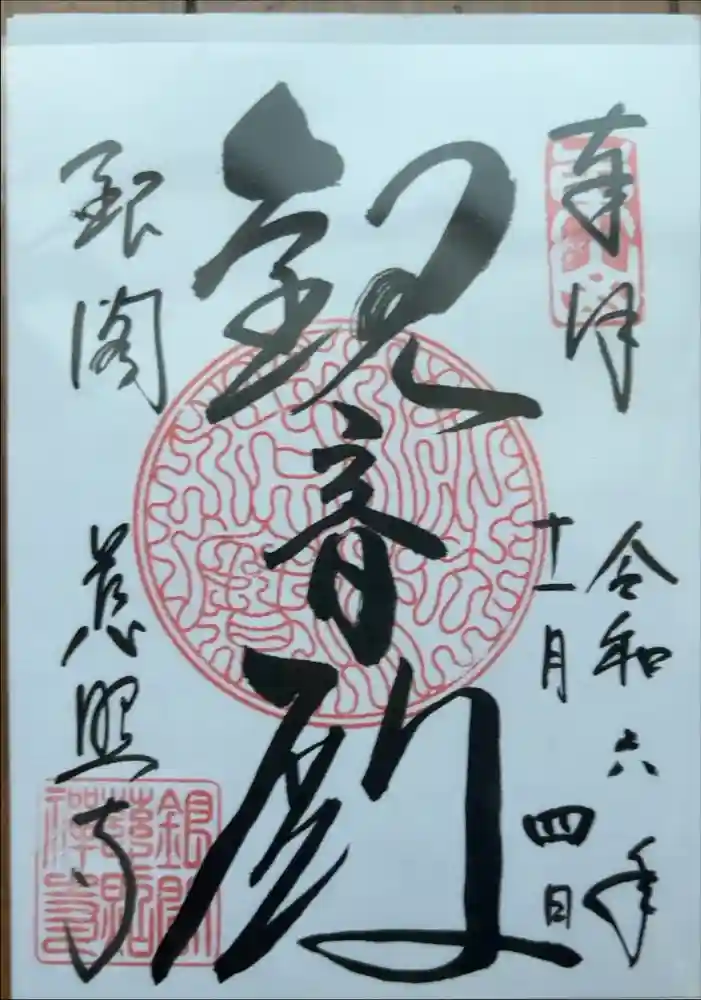 奉拝
令和六年
十一月
四日
観音殿
銀閣
慈照寺
銀閣慈照禅寺